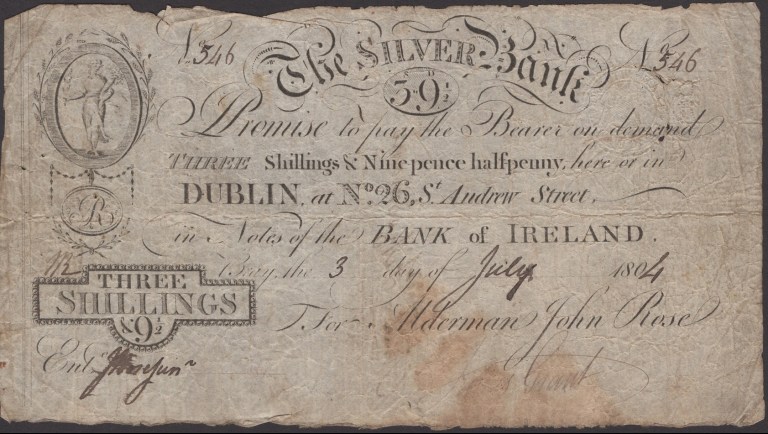 No 546
No 546
The SILVER Bank
S D
3·9½
I Promise to pay the Bearer on demand
THREE Shillings & Nine pence halfpenny, here or in
DUBLIN, at No. 26, St. Andrew Street,
in Notes of the BANK of IRELAND.
Bray the 3 day of July 1804
THREE
SHILLINGS
& 9½
For Alderman John Rose
Entd
JR